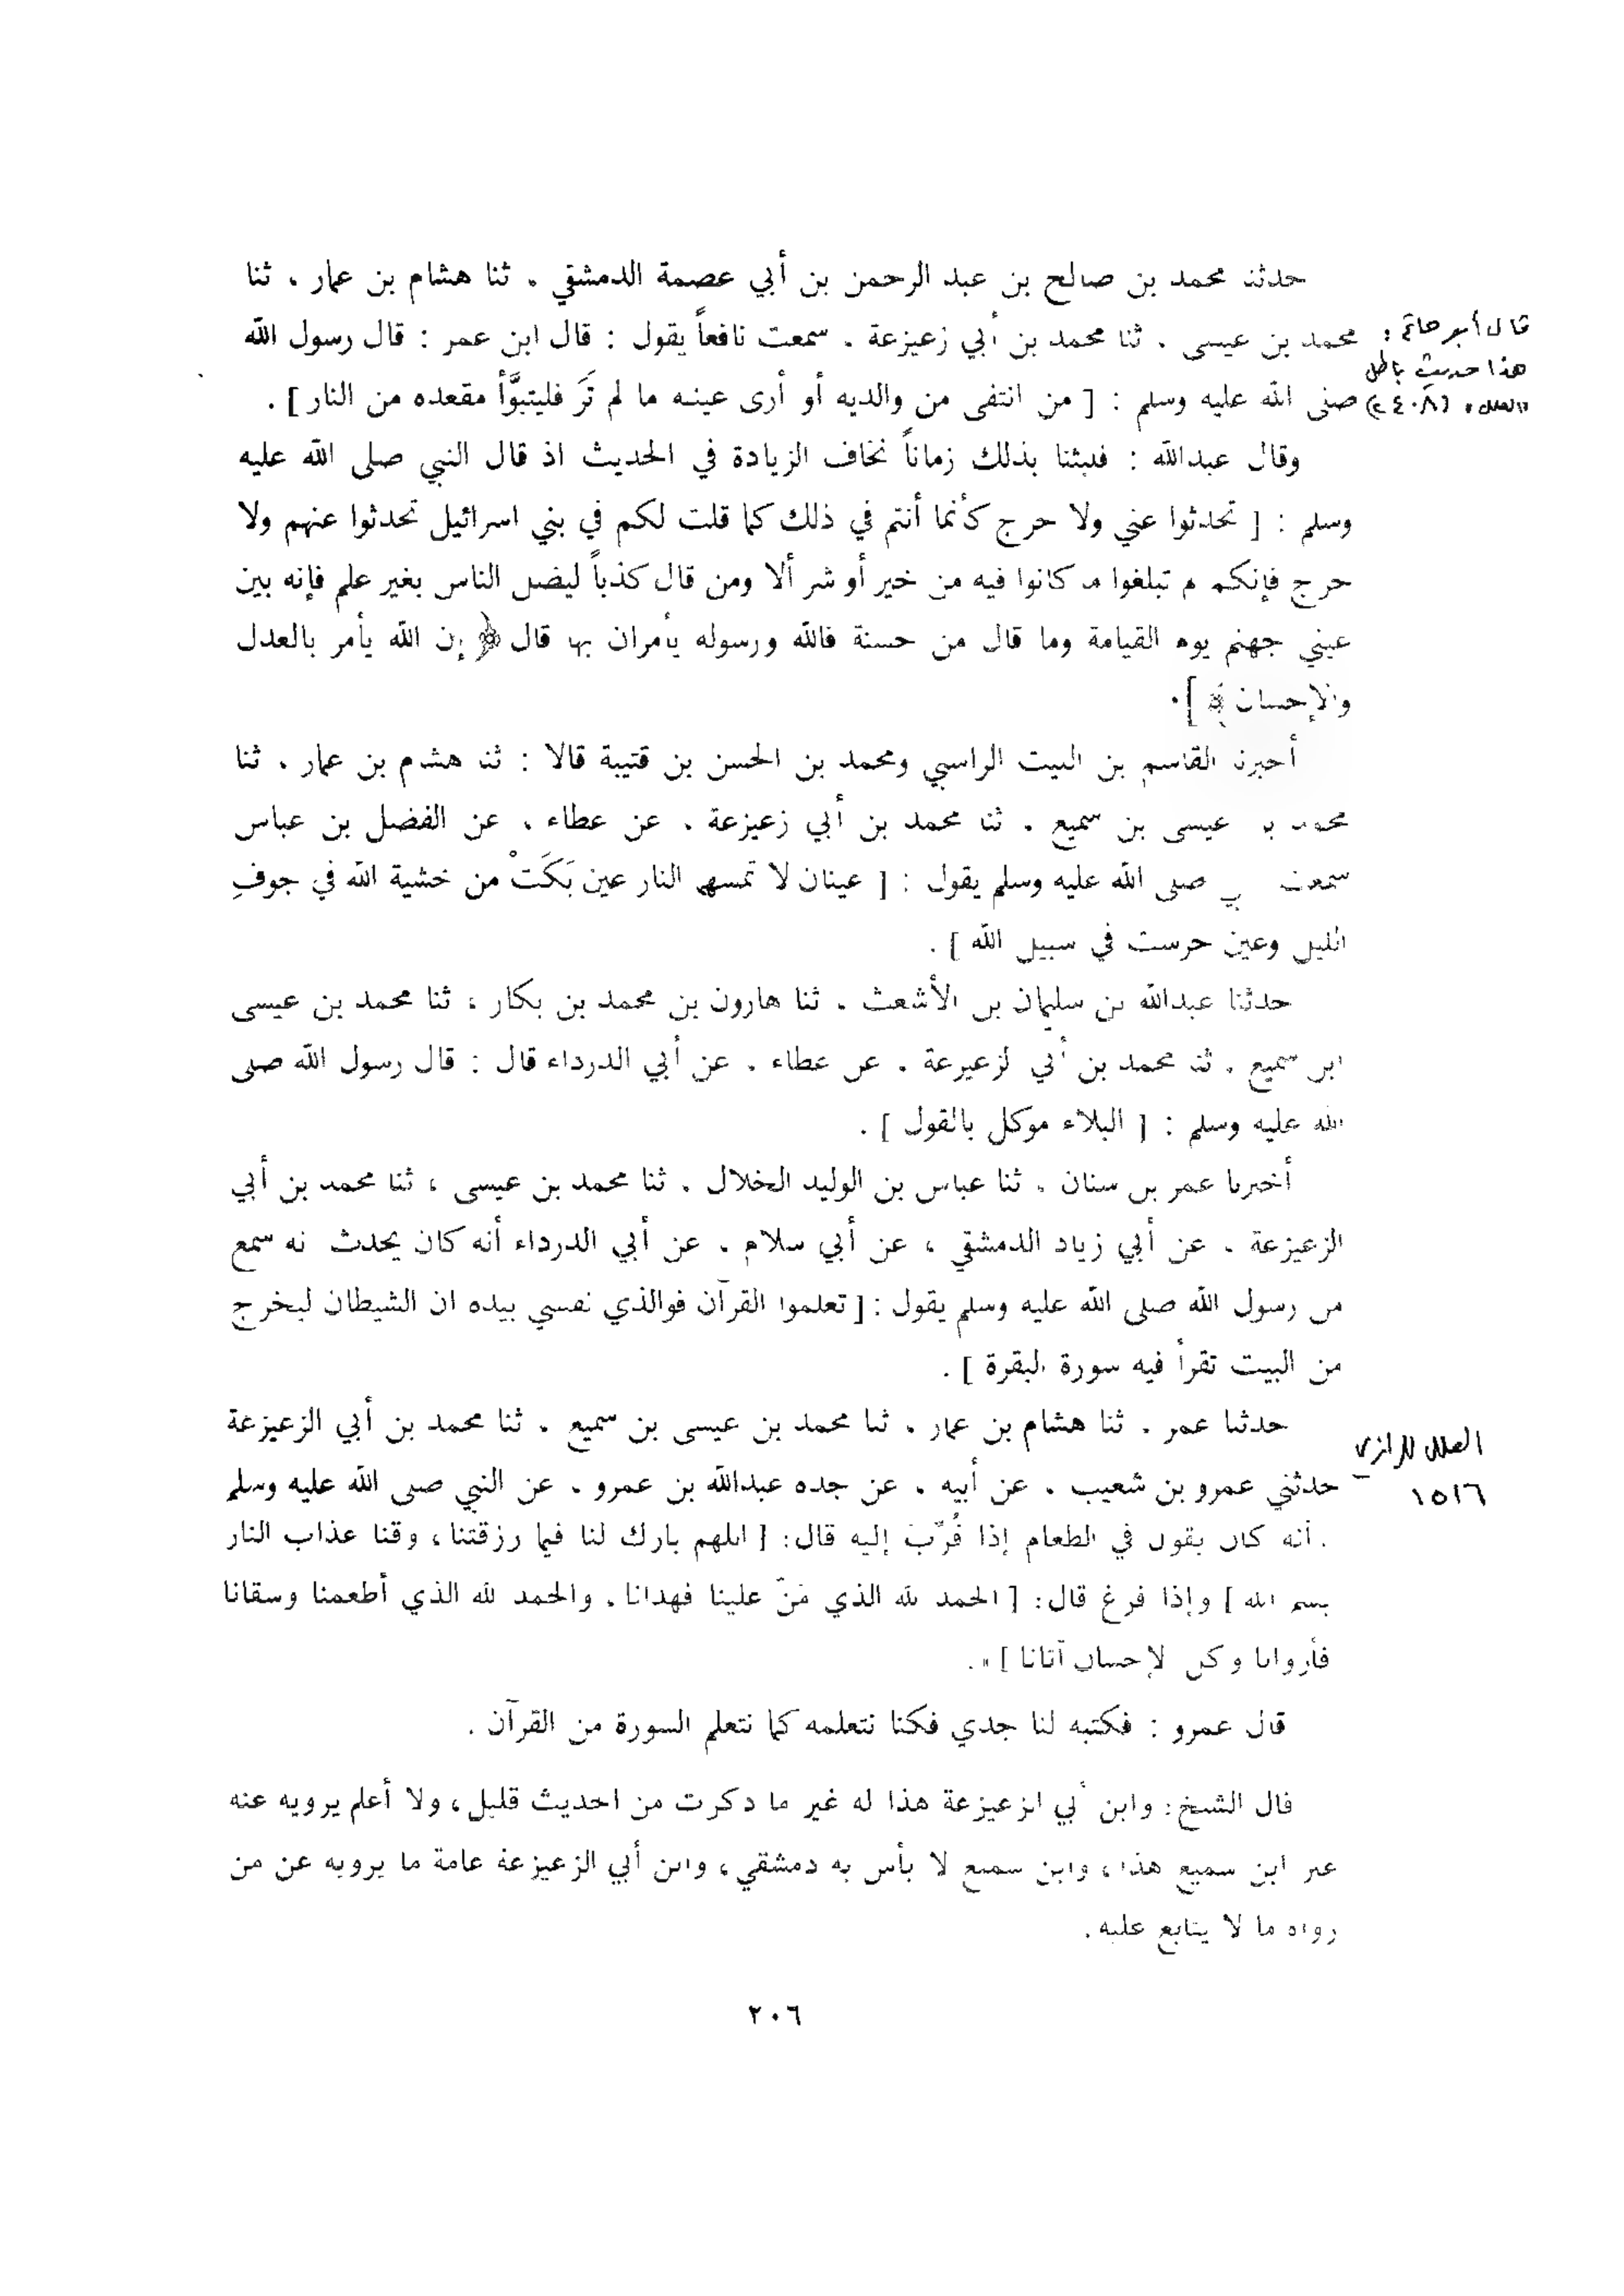 حدثنا محمد بن صالح بن عبد الرحمن بن أبي عصمة الدمشقي ، ثنا هشام بن عمار ، ثنا
محمد بن عيسى ، ثنا محمد بن أبي زعيزعة ، سمعت نافعاً يقول : قال ابن عمر : قال رسول الله
قال أبو حاتم :
هذا حديث باطل
"العلل" (٢٤٠٨)
صلى الله عليه وسلم : [ من انتفى من والديه أو أرى عينه ما لم تَرَ فليتبوَّأ مقعده من النار ] .
وقال عبدالله : فلبثنا بذلك زماناً نخاف الزيادة في الحديث اذ قال النبي صلى الله عليه
وسلم : [ تحدثوا عني ولا حرج كأنما أنتم في ذلك كما قلت لكم في بني اسرائيل تحدثوا عنهم ولا
حرج فإنكم م تبلغوا ما كانوا فيه من خير أو شر ألا ومن قال كذباً ليضل الناس بغير علم فإنه بين
عيني جهنم يوم القيامة وما قال من حسنة فالله ورسوله يأمران بها قال ﴿ إن الله يأمر بالعدل
والإحسان ﴾ ] .
أخبرنا القاسم بن الليث الراسبي ومحمد بن الحسن بن قتيبة قالا : ثنا هشام بن عمار ، ثنا
محمد بن عيسى بن سميع ، ثنا محمد بن أبي زعيزعة ، عن عطاء ، عن الفضل بن عباس
سمعت صلى الله عليه وسلم يقول : [ عينان لا تمسهم النار عين بَكَتْ من خشية الله في جوفِ
الليل وعين حرست في سبيل الله ] .
حدثنا عبدالله بن سليمان بن الأشعث ، ثنا هارون بن محمد بن بكار ، ثنا محمد بن عيسى
ابن سميع ، ثنا محمد بن أبي لزعيزعة ، عن عطاء ، عن أبي الدرداء قال : قال رسول الله صلى
الله عليه وسلم : [ البلاء موكل بالقول ] .
أخبرنا عمر بن سنان ، ثنا عباس بن الوليد الخلال ، ثنا محمد بن عيسى ، ثنا محمد بن أبي
الزعيزعة ، عن أبي زياد الدمشقي ، عن أبي سلام ، عن أبي الدرداء أنه كان يحدث نه سمع
من رسول الله صلى الله عليه وسلم يقول : [ تعلموا القرآن فوالذي نفسي بيده ان الشيطان ليخرج
من البيت تقرأ فيه سورة البقرة ] .
حدثنا عمر ، ثنا هشام بن عمار ، ثنا محمد بن عيسى بن سميع ، ثنا محمد بن أبي الزعيزعة
العلل للرازي
١٥١٦
حدثني عمرو بن شعيب ، عن أبيه ، عن جده عبدالله بن عمرو ، عن النبي صلى الله عليه وسلم
. أنه كان يقول في الطعام إذا قُرِّبَ إليه قال : [ اللهم بارك لنا فيما رزقتنا ، وقنا عذاب النار
بسم الله ] وإذا فرغ قال : [ الحمد لله الذي مَنّ علينا فهدانا ، والحمد لله الذي أطعمنا وسقانا
فأروانا وكل لإحسان آتانا ] » .
قال عمرو : فكتبه لنا جدي فكنا نتعلمه كما نتعلم السورة من القرآن .
قال الشيخ : وابن أبي الزعيزعة هذا له غير ما ذكرت من احديث قليل ، ولا أعلم يرويه عنه
غير ابن سميع هذا ، وابن سميع لا بأس به دمشقي ، وابن أبي الزعيزعة عامة ما يرويه عن من
رواه ما لا يتابع عليه .
٢٠٦